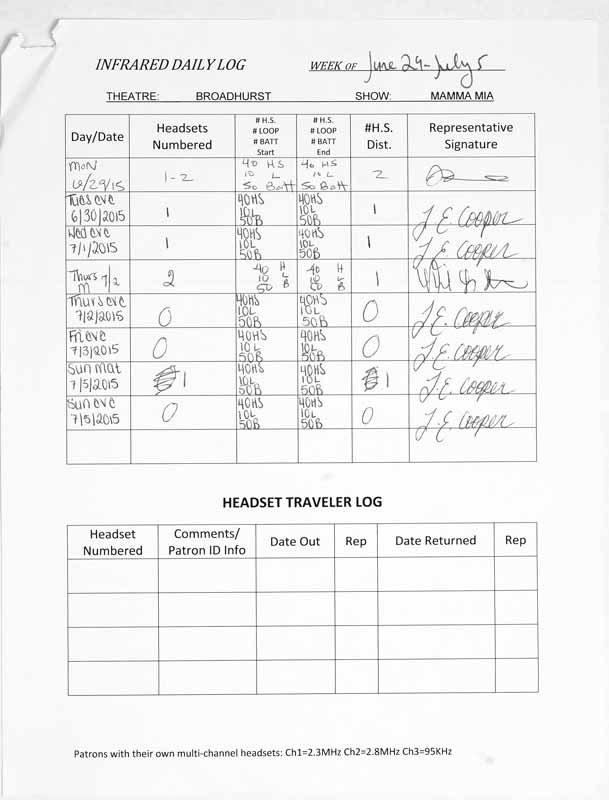 INFRARED DAILY LOG WEEK OF June 29-July 5
THEATRE: BROADHURST SHOW: MAMMA MIA
Day/Date Headsets Numbered # H.S. # LOOP # BATT Start # H.S. # LOOP # BATT End #H.S. Dist. Representative Signature
Mon 6/29/15 1-2 40 HS 10 L 50 Batt 40 HS 10 L 50 Batt 2
Tues eve 6/30/2015 1 40HS 10L 50B 40HS 10L 50B 1 J.E. Cooper
Wed eve 7/1/2015 1 40HS 10L 50B 40HS 10L 50B 1 J.E. Cooper
Thurs M 7/2 2 40 H 10 L 50 B 40 H 10 L 50 B 1
Thurs eve 7/2/2015 0 40HS 10L 50B 40HS 10L 50B 0 J.E. Cooper
Fri eve 7/3/2015 0 40HS 10L 50B 40HS 10L 50B 0 J.E. Cooper
Sun mat 7/5/2015 1 40HS 10L 50B 40HS 10L 50B 1 J.E. Cooper
Sun eve 7/5/2015 0 40HS 10L 50B 40HS 10L 50B 0 J.E. Cooper
HEADSET TRAVELER LOG
Headset Numbered Comments/ Patron ID Info Date Out Rep Date Returned Rep
Patrons with their own multi-channel headsets: Ch1=2.3MHz Ch2=2.8MHz Ch3=95KHz